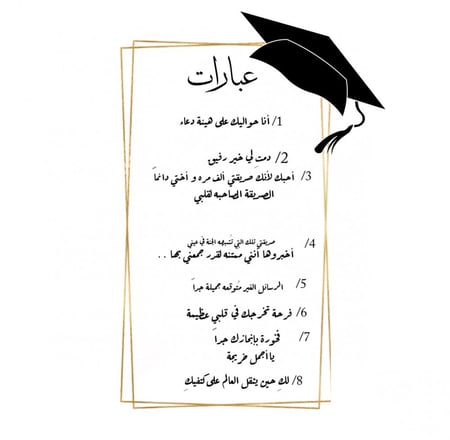 عبارات
1/ أنا حواليك على هيئة دعاء
2/ دمتِ لي خير رفيق
3/ أحبك لأنك صديقتي ألف مره و أختي دائماً
الصديقة الصاحبه لقلبي
4/ صديقتي تلك التي تُشبهه الجنة في عيني
أخبروها أنني ممتنه لقدر جمعني بها . .
5/ الرسائل الغير متوقعه جميلة جداً
6/ فرحة تخرجك في قلبي عظيمة
7/ فخورة بإنجازك جداً
يا أجمل خريجة
8/ لكِ حين يثقل العالم على كتفيكِ